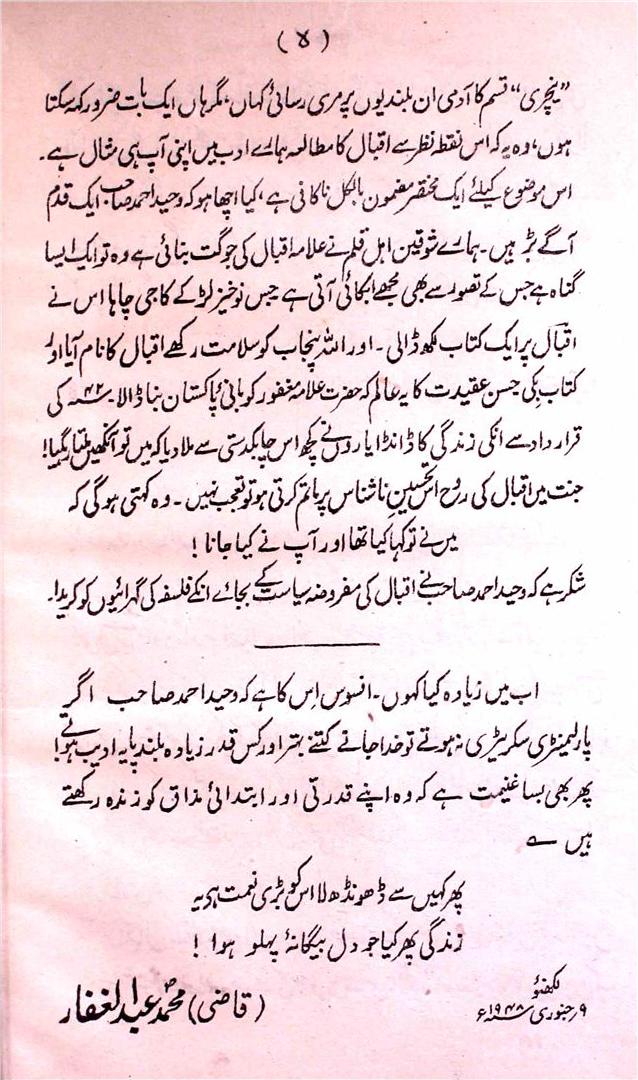 (۴)
”نیچری“ قسم کا آدمی ان بلندیوں پر مری رسائی کہاں، مگر ہاں ایک بات ضرور کہہ سکتا
ہوں، وہ یہ کہ اس نقطہ نظر سے اقبال کا مطالعہ ہمارے ادب میں اپنی آپ ہی مثال ہے۔
اس موضوع کیلئے ایک مختصر مضمون بالکل ناکافی ہے، کیا اچھا ہو کہ وحید احمد صاحب ایک قدم
آگے بڑہیں۔ ہمارے شوقین اہل قلم نے علامہ اقبال کی جو گت بنائی ہے وہ تو ایک ایسا
گناہ ہے جس کے تصور سے بھی مجھے ابکائی آتی ہے جس نوخیز لڑکے کا جی چاہا اس نے
اقبال پر ایک کتاب لکھ ڈالی۔ اور اللہ پنجاب کو سلامت رکھے اقبال کا نام آیا اور
کتاب بکی حسن عقیدت کا یہ عالم کہ حضرت علامہ مغفور کو بانیٔ پاکستان بنا ڈالا۔ ۴۲ء کی
قرار داد سے انکی زندگی کا ڈانڈا یاروں نے کچھ اس چابکدستی سے ملا دیا کہ میں تو آنکھیں ملتا رہگیا!
جنت میں اقبال کی روح اس تحسین ناشناس پر ماتم کرتی ہو تو تعجب نہیں۔ وہ کہتی ہوگی کہ
میں نے تو کہا کیا تھا اور آپ نے کیا جانا!
شکر ہے کہ وحید احمد صاحب نے اقبال کی مفروضہ سیاست کے بجائے انکے فلسفہ کی گہرائیوں کو کریدا۔
اب میں زیادہ کیا کہوں۔ افسوس اس کا ہے کہ وحید احمد صاحب اگر
پارلیمنٹری سکریٹری نہ ہوتے تو خدا جانے کتنے بہتر اور کس قدر زیادہ بلند پایہ ادیب ہوتے!
پھر بھی بسا غنیمت ہے کہ وہ اپنے قدرتی اور ابتدائی مذاق کو زندہ رکھتے
ہیں ؎
پھر کہیں سے ڈھونڈھ لا اس کو بڑی نعمت ہے یہ
زندگی پھر کیا جو دل بیگانۂ پہلو ہوا!
لکھنؤ
۹؍ جنوری ۱۹۴۸ء
(قاضی) محمد عبدالغفار